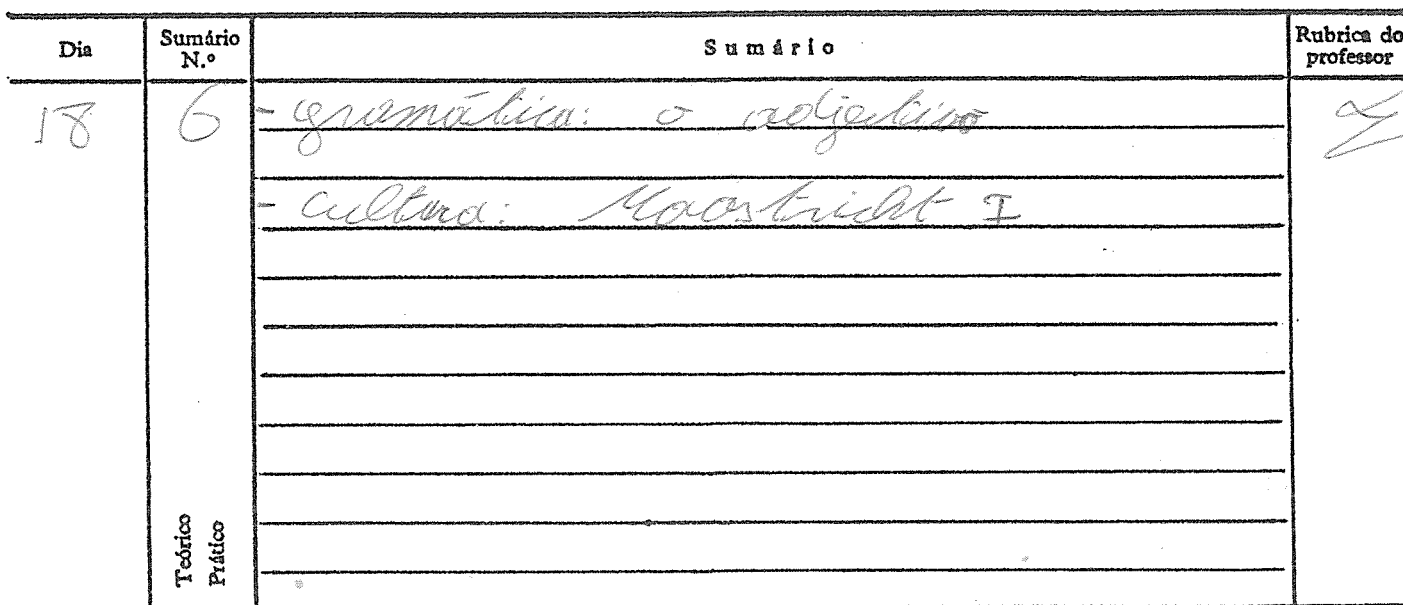 Dia Sumário N.º Sumário Rubrica do professor
18 6 - gramática: o adjectivo
- cultura: Maastricht I
Teórico
Prático